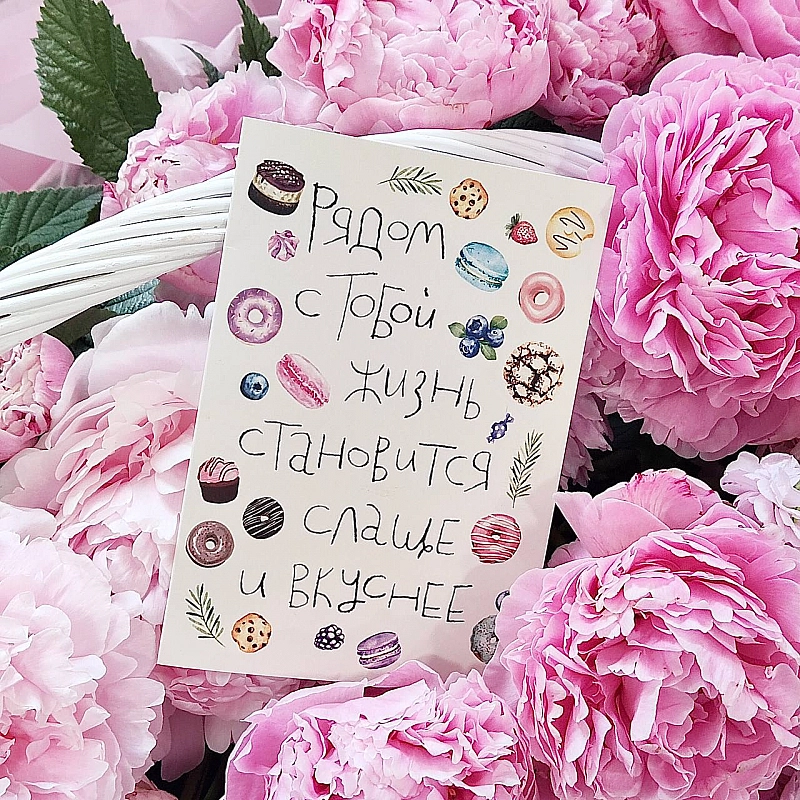 Рядом
с тобой
жизнь
становится
слаще
и вкуснее